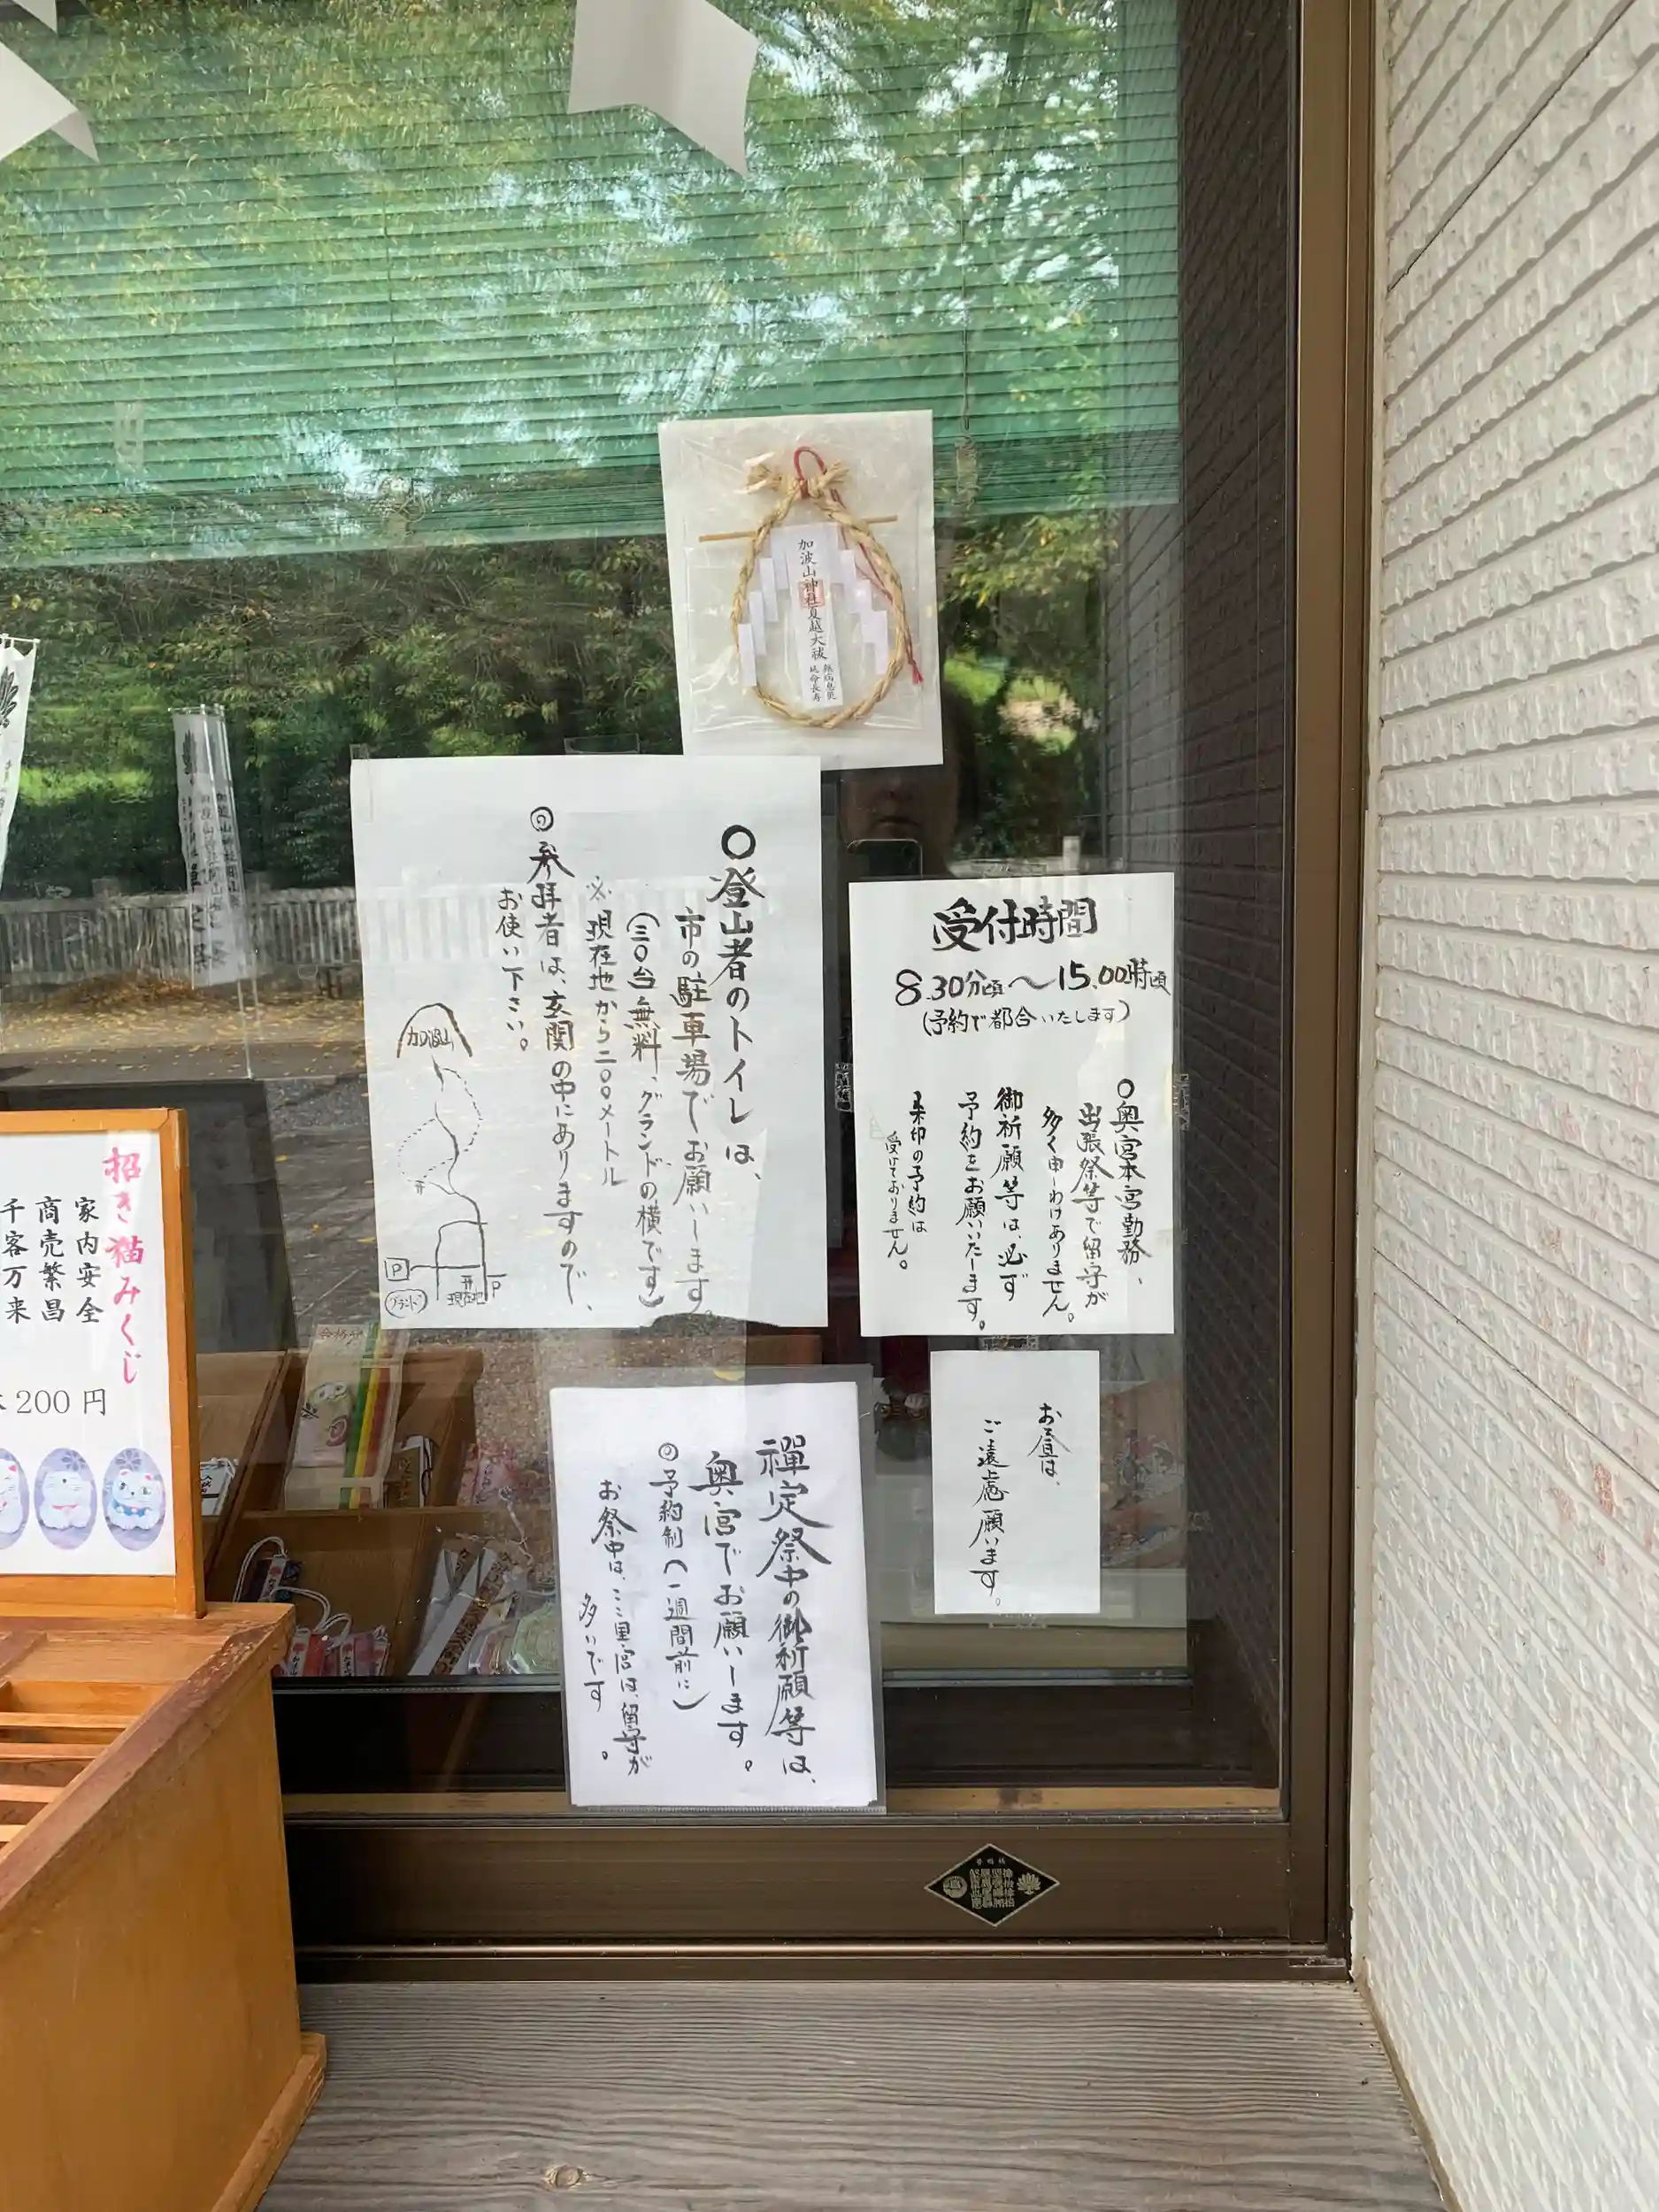 加波山神社夏越大祓
無病息災
延命長寿
○登山者のトイレは、
市の駐車場でお願いします。
(三〇台無料、グランドの横です)
※現在地から二〇〇メートル
◎参拝者は、玄関の中にありますので、
お使い下さい。
加波山
P
グランド
現在地
P
受付時間
8.30分頃〜15.00時頃
(予約で都合いたします)
○奥宮本宮勤務、
出張祭等で留守が
多く申しわけありません。
御祈願等は、必ず
予約をお願いいたします。
朱印の予約は
受けておりません。
お昼は、
ご遠慮願います。
禪定祭中の御祈願等は、
奥宮でお願いします。
◎予約制(一週間前に)
お祭中は、ここ里宮は、留守が
多いです。
招き猫みくじ
家内安全
商売繁昌
千客万来
200円
合格